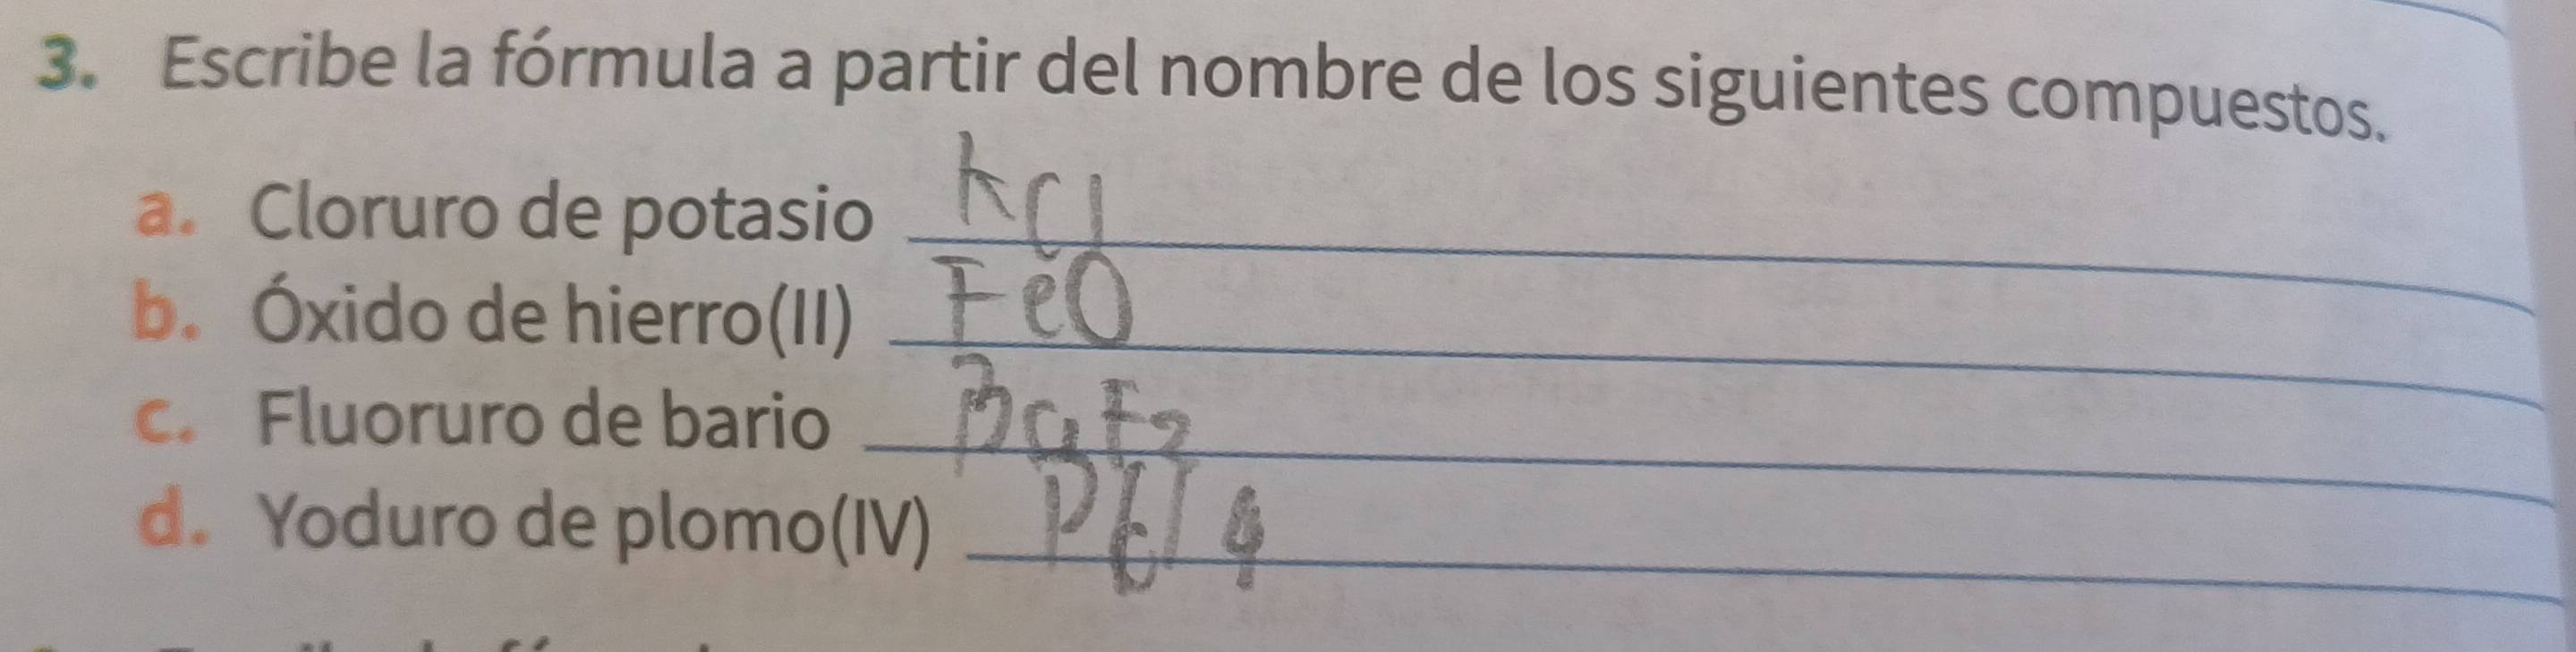 3. Escribe la fórmula a partir del nombre de los siguientes compuestos.
a. Cloruro de potasio KCl
b. Óxido de hierro(II) FeO
c. Fluoruro de bario BaF2
d. Yoduro de plomo(IV) PbI4